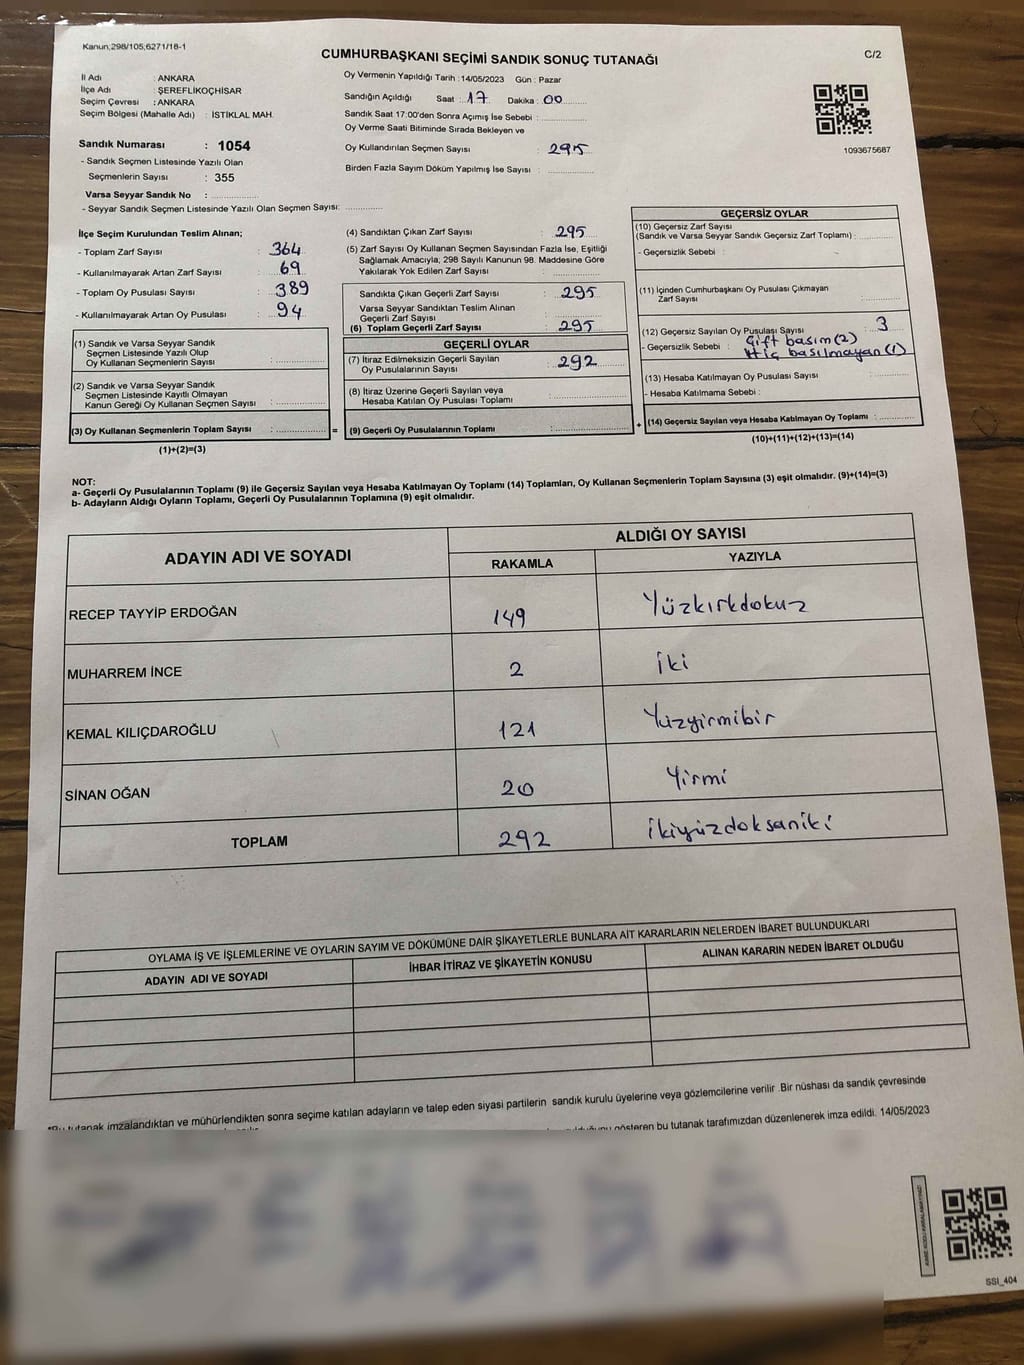 Kanun;298/105;6271/18-1
CUMHURBAŞKANI SEÇİMİ SANDIK SONUÇ TUTANAĞI
C/2
İl Adı : ANKARA
İlçe Adı : ŞEREFLİKOÇHİSAR
Seçim Çevresi : ANKARA
Seçim Bölgesi (Mahalle Adı) : İSTİKLAL MAH.
Sandık Numarası : 1054
- Sandık Seçmen Listesinde Yazılı Olan
Seçmenlerin Sayısı : 355
Varsa Seyyar Sandık No :
- Seyyar Sandık Seçmen Listesinde Yazılı Olan Seçmen Sayısı:
Oy Vermenin Yapıldığı Tarih : 14/05/2023 Gün : Pazar
Sandığın Açıldığı Saat : 17 Dakika : 00
Sandık Saat 17:00'den Sonra Açımış İse Sebebi :
Oy Verme Saati Bitiminde Sırada Bekleyen ve
Oy Kullandırılan Seçmen Sayısı : 295
Birden Fazla Sayım Döküm Yapılmış İse Sayısı :
1093675687
İlçe Seçim Kurulundan Teslim Alınan;
- Toplam Zarf Sayısı : 364
- Kullanılmayarak Artan Zarf Sayısı : 69
- Toplam Oy Pusulası Sayısı : 389
- Kullanılmayarak Artan Oy Pusulası : 94
(1) Sandık ve Varsa Seyyar Sandık
Seçmen Listesinde Yazılı Olup
Oy Kullanan Seçmenlerin Sayısı :
(2) Sandık ve Varsa Seyyar Sandık
Seçmen Listesinde Kayıtlı Olmayan
Kanun Gereği Oy Kullanan Seçmen Sayısı :
(3) Oy Kullanan Seçmenlerin Toplam Sayısı :
(1)+(2)=(3)
=
(4) Sandıktan Çıkan Zarf Sayısı : 295
(5) Zarf Sayısı Oy Kullanan Seçmen Sayısından Fazla İse, Eşitliği
Sağlamak Amacıyla, 298 Sayılı Kanunun 98. Maddesine Göre
Yakılarak Yok Edilen Zarf Sayısı :
Sandıkta Çıkan Geçerli Zarf Sayısı : 295
Varsa Seyyar Sandıktan Teslim Alınan
Geçerli Zarf Sayısı :
(6) Toplam Geçerli Zarf Sayısı : 295
GEÇERLİ OYLAR
(7) İtiraz Edilmeksizin Geçerli Sayılan
Oy Pusulalarının Sayısı : 292
(8) İtiraz Üzerine Geçerli Sayılan veya
Hesaba Katılan Oy Pusulası Toplamı :
(9) Geçerli Oy Pusulalarının Toplamı :
+
GEÇERSİZ OYLAR
(10) Geçersiz Zarf Sayısı
(Sandık ve Varsa Seyyar Sandık Geçersiz Zarf Toplamı) :
- Geçersizlik Sebebi :
(11) İçinden Cumhurbaşkanı Oy Pusulası Çıkmayan
Zarf Sayısı :
(12) Geçersiz Sayılan Oy Pusulası Sayısı : 3
- Geçersizlik Sebebi : Çift basım (2)
Hiç basılmayan (1)
(13) Hesaba Katılmayan Oy Pusulası Sayısı :
- Hesaba Katılmama Sebebi :
(14) Geçersiz Sayılan veya Hesaba Katılmayan Oy Toplamı :
(10)+(11)+(12)+(13)=(14)
NOT:
a- Geçerli Oy Pusulalarının Toplamı (9) ile Geçersiz Sayılan veya Hesaba Katılmayan Oy Toplamı (14) Toplamları, Oy Kullanan Seçmenlerin Toplam Sayısına (3) eşit olmalıdır. (9)+(14)=(3)
b- Adayların Aldığı Oyların Toplamı, Geçerli Oy Pusulalarının Toplamına (9) eşit olmalıdır.
ADAYIN ADI VE SOYADI
ALDIĞI OY SAYISI
RAKAMLA YAZIYLA
RECEP TAYYİP ERDOĞAN 149 Yüzkırkdokuz
MUHARREM İNCE 2 iki
KEMAL KILIÇDAROĞLU 121 Yüzyirmibir
SİNAN OĞAN 20 Yirmi
TOPLAM 292 ikiyüzdoksaniki
OYLAMA İŞ VE İŞLEMLERİNE VE OYLARIN SAYIM VE DÖKÜMÜNE DAİR ŞİKAYETLERLE BUNLARA AİT KARARLARIN NELERDEN İBARET BULUNDUKLARI
ADAYIN ADI VE SOYADI İHBAR İTİRAZ VE ŞİKAYETİN KONUSU ALINAN KARARIN NEDEN İBARET OLDUĞU
*Bu tutanak imzalandıktan ve mühürlendikten sonra seçime katılan adayların ve talep eden siyasi partilerin sandık kurulu üyelerine veya gözlemcilerine verilir .Bir nüshası da sandık çevresinde
gösteren bu tutanak tarafımızdan düzenlenerek imza edildi. 14/05/2023
SSI_404